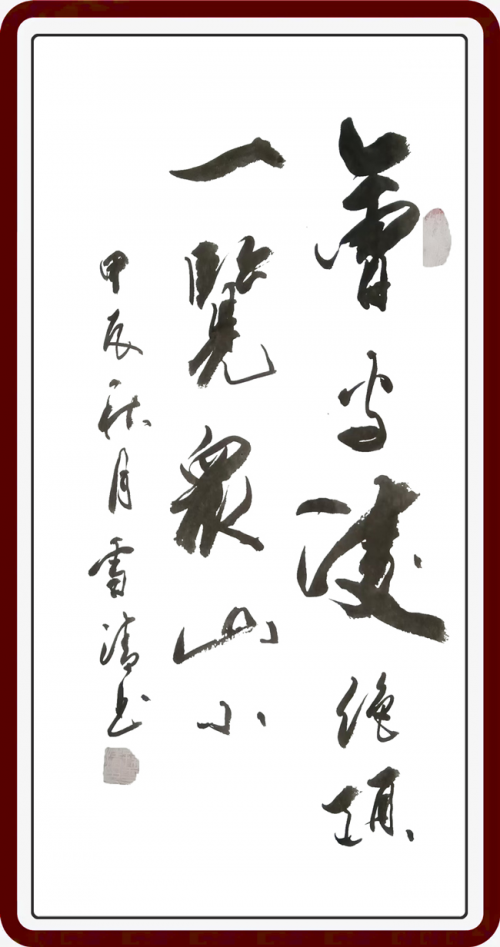 會當凌絕頂
一覽眾山小
甲辰秋月雪清书